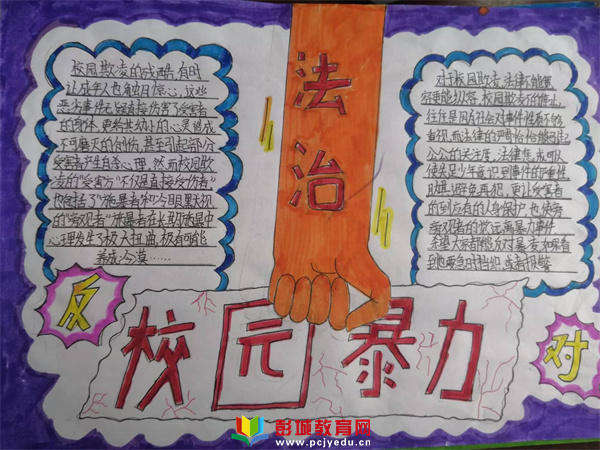 法治
校园欺凌的残酷,有时
让成年人也触目惊心,这些
恶劣事件无疑直接伤害了受害者
的身体,更给其幼小的心灵造成
不可磨灭的创伤,甚至引起部分
受害者产生自杀心理,然而校园欺
凌的“受害方”不仅是直接受伤者”
也包括了“施暴者林”冷眼默视
的“旁观者”施暴者在长期施暴中
心理发生了极大扭曲,极有可能
养成冷漠……
对于校园欺凌,法律不能宽
容更能纵容,校园欺凌的
往往是因为社会对事件性看不够
重视,而法律的严肃
公众的关注度,法律
使未足少年意识到事件的严重性
时其避免再犯,更让受害者
的到后有的人身保护,也使旁
观者的觉远离暴力事件
希望大家都能反对暴者,如果看
到他要急时档织,或者报警
反对
校园暴力
彭城教育网
www.pcjyedu.cn